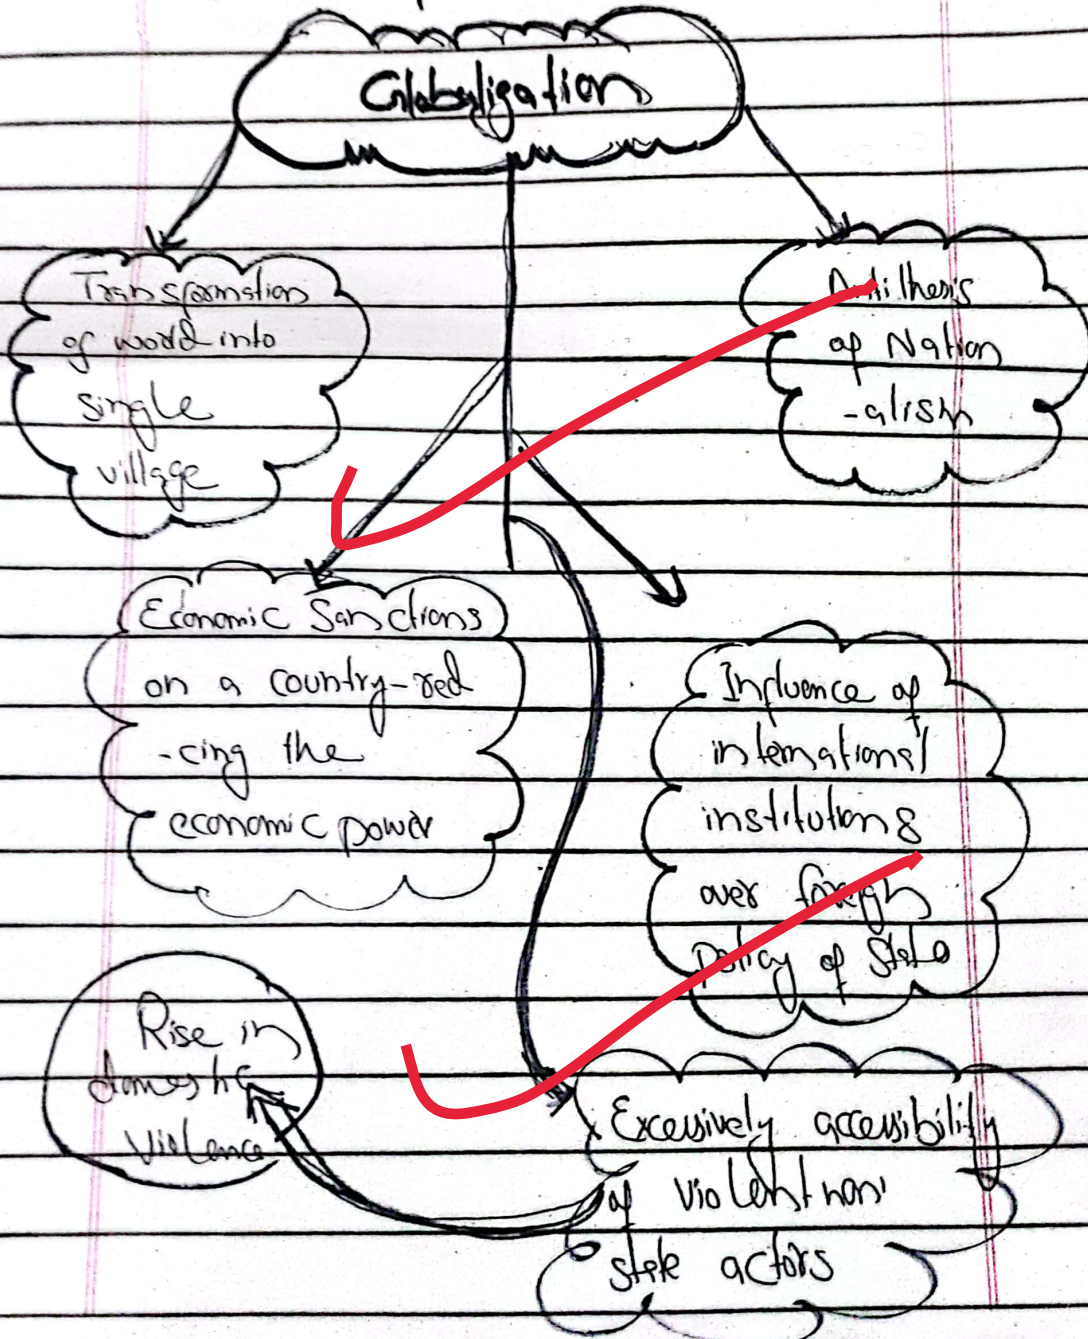 Globalization
Transformation
of world into
single
village
Antithesis
of Nation
-alism
Economic Sanctions
on a country-red
-cing the
economic power
Influence of
international
institutions
over foreign
policy of state
Rise in
domestic
violence
Excessively accessibility
of violent non
state actors